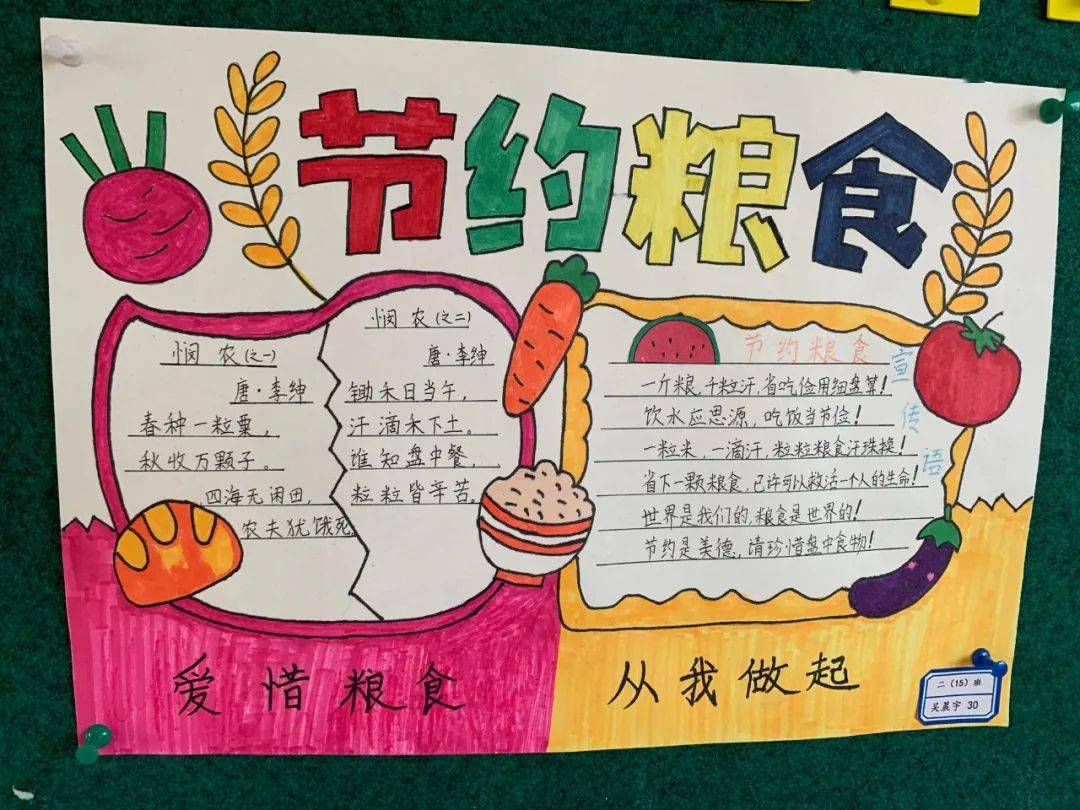 节约粮食
悯农(之一)
唐·李绅
春种一粒粟，
秋收万颗子。
四海无闲田，
农夫犹饿死
悯农(之二)
唐·李绅
锄禾日当午，
汗滴禾下土。
谁知盘中餐，
粒粒皆辛苦。
节约粮食
宣传语
一斤粮，千粒汗，省吃俭用细盘算！
饮水应思源，吃饭当节俭！
一粒米，一滴汗，粒粒粮食汗珠换！
省下一颗粮食，已许可以救活一个人的生命！
世界是我们的，粮食是世界的！
节约是美德，请珍惜盘中食物！
爱惜粮食
从我做起
二（15）班
吴晨宇 30